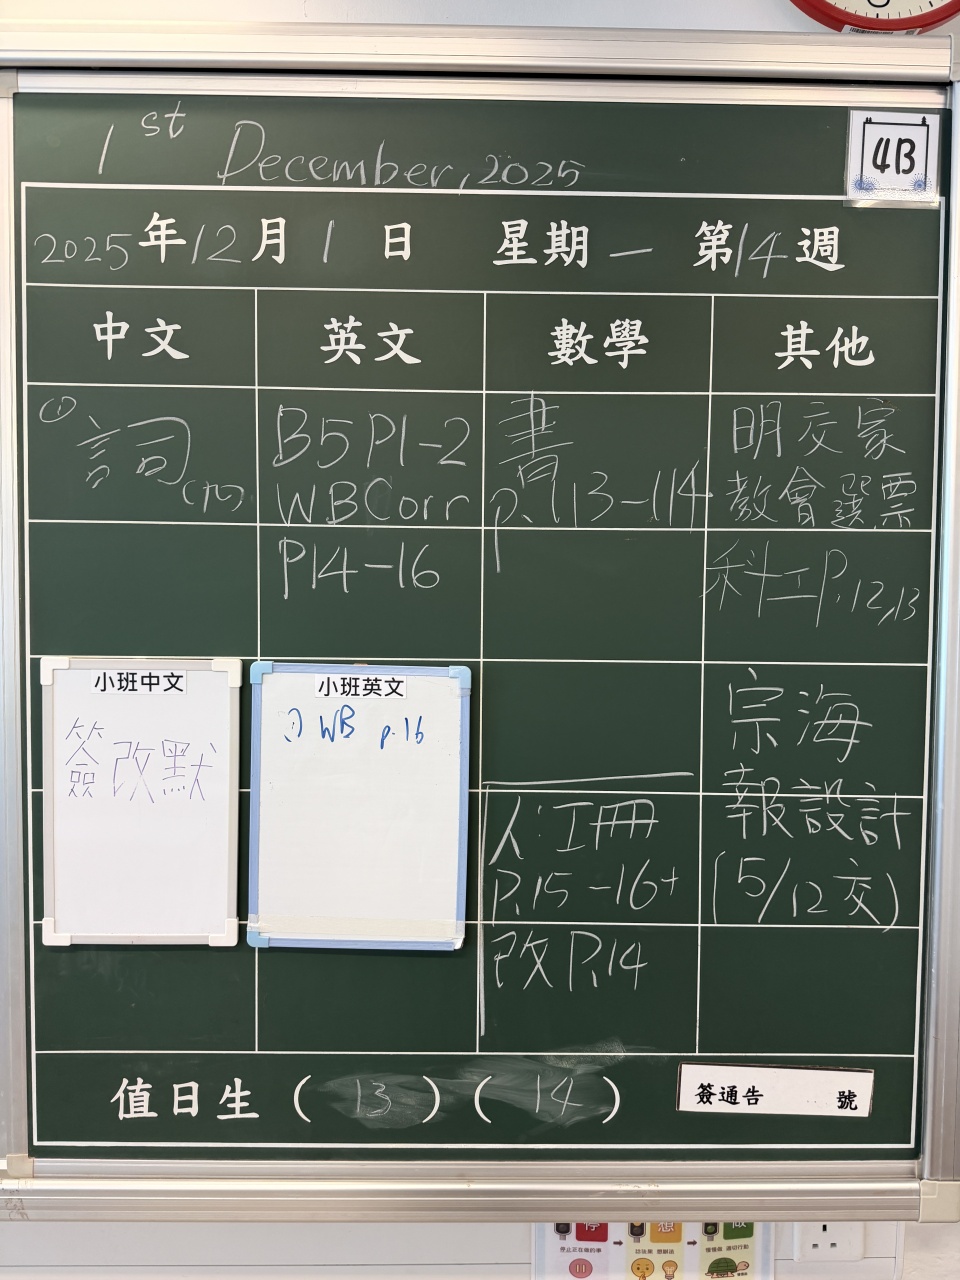 1st December, 2025
4B
2025年12月1日 星期一 第14週
中文
英文
數學
其他
① 詞(九)
B5P1-2
WBCorr
P14-16
書
p.113-114
明交家
教會選票
科工P.12,13
小班中文
簽改默
小班英文
① WB p.16
人:工冊
P.15-16+
改P.14
宗海
報設計
(5/12交)
值日生(13)(14)
簽通告 號
停
想
做